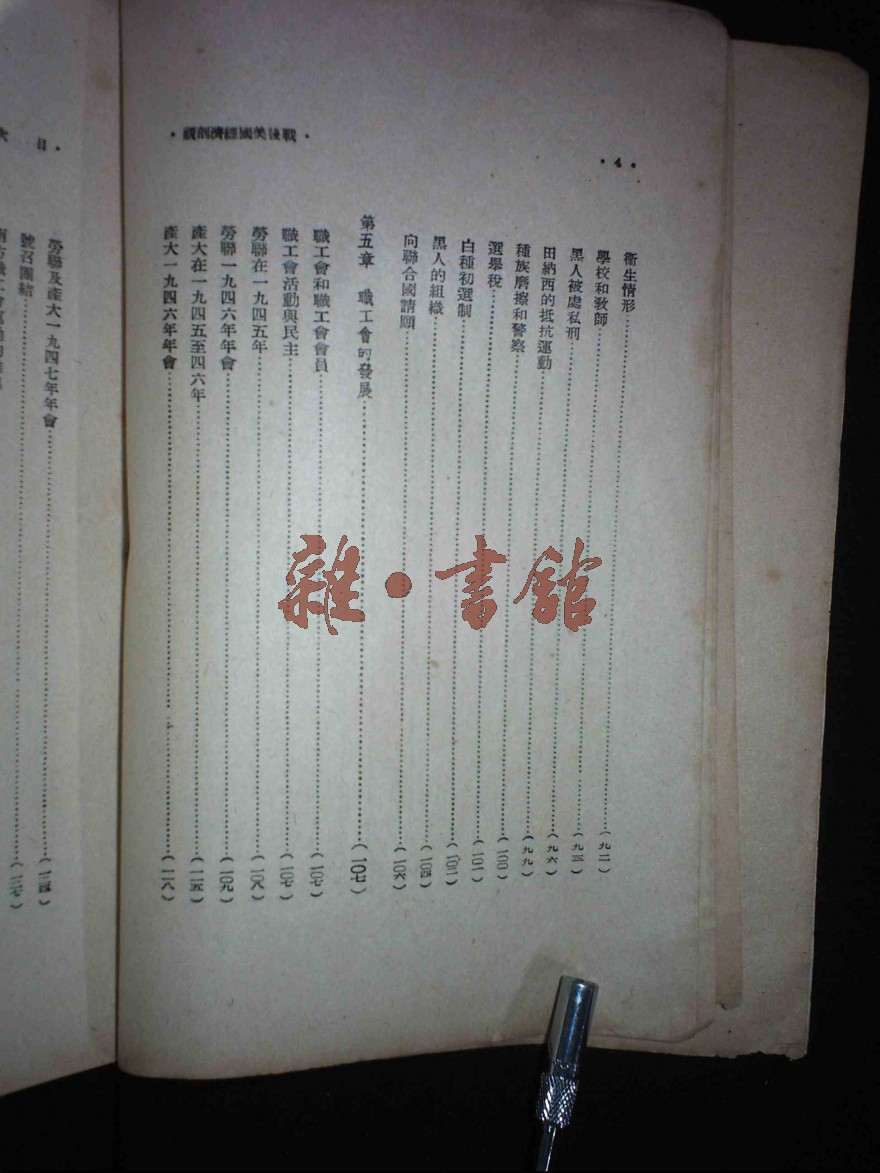 ·戰後美國經濟剖視·
·4·
衞生情形
學校和敎師……(九一)
黑人被處私刑……(九三)
田納西的抵抗運動……(九六)
種族磨擦和警察……(九九)
選舉稅……(一〇〇)
白種初選制……(一〇一)
黑人的組織
向聯合國請願……(一〇六)
第五章 職工會的發展……(一〇七)
職工會和職工會會員……(一〇七)
職工會活動與民主……(一〇七)
勞聯在一九四五年……(一〇八)
勞聯一九四六年年會……(一〇九)
產大在一九四五至四六年……(一一五)
產大一九四六年年會……(一一八)
目
勞聯及產大一九四七年年會
號召團結
雜·書館